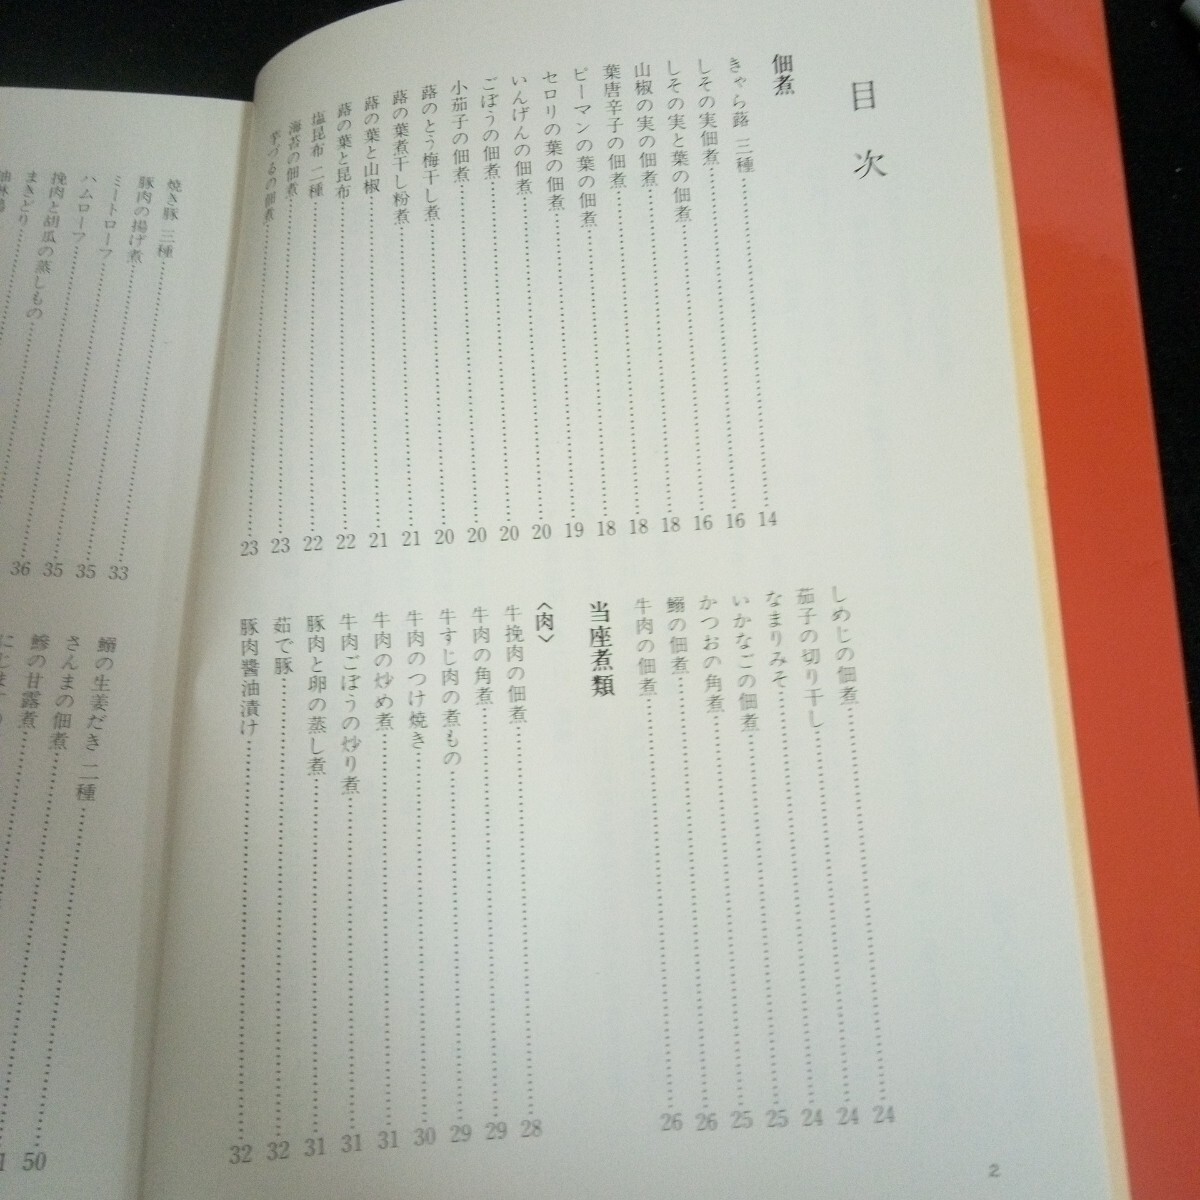 目次
佃煮
きゃら蕗 三種……14
しその実佃煮……16
しその実と葉の佃煮……16
山椒の実の佃煮……18
葉唐辛子の佃煮……18
ピーマンの葉の佃煮……18
セロリの葉の佃煮……19
いんげんの佃煮……20
ごぼうの佃煮……20
小茄子の佃煮……20
蕗のとう梅干し煮……20
蕗の葉煮干し粉煮……21
蕗の葉と山椒……21
蕗の葉と昆布……22
塩昆布 二種……22
海苔の佃煮……23
芋づるの佃煮……23
しめじの佃煮……24
茄子の切り干し……24
なまりみそ……24
いかなごの佃煮……25
かつおの角煮……25
鰯の佃煮……26
牛肉の佃煮……26
当座煮類
〈肉〉
牛挽肉の佃煮……28
牛肉の角煮……29
牛すじ肉の煮もの……29
牛肉のつけ焼き……30
牛肉の炒め煮……31
牛肉ごぼうの炒り煮……31
豚肉と卵の蒸し煮……31
茹で豚……32
豚肉醬油漬け……32
2
焼き豚 三種
豚肉の揚げ煮……33
ミートローフ……35
ハムローフ……35
挽肉と胡瓜の蒸しもの……36
まきどり
鰯の生姜だき 二種……50
さんまの佃煮
鯵の甘露煮